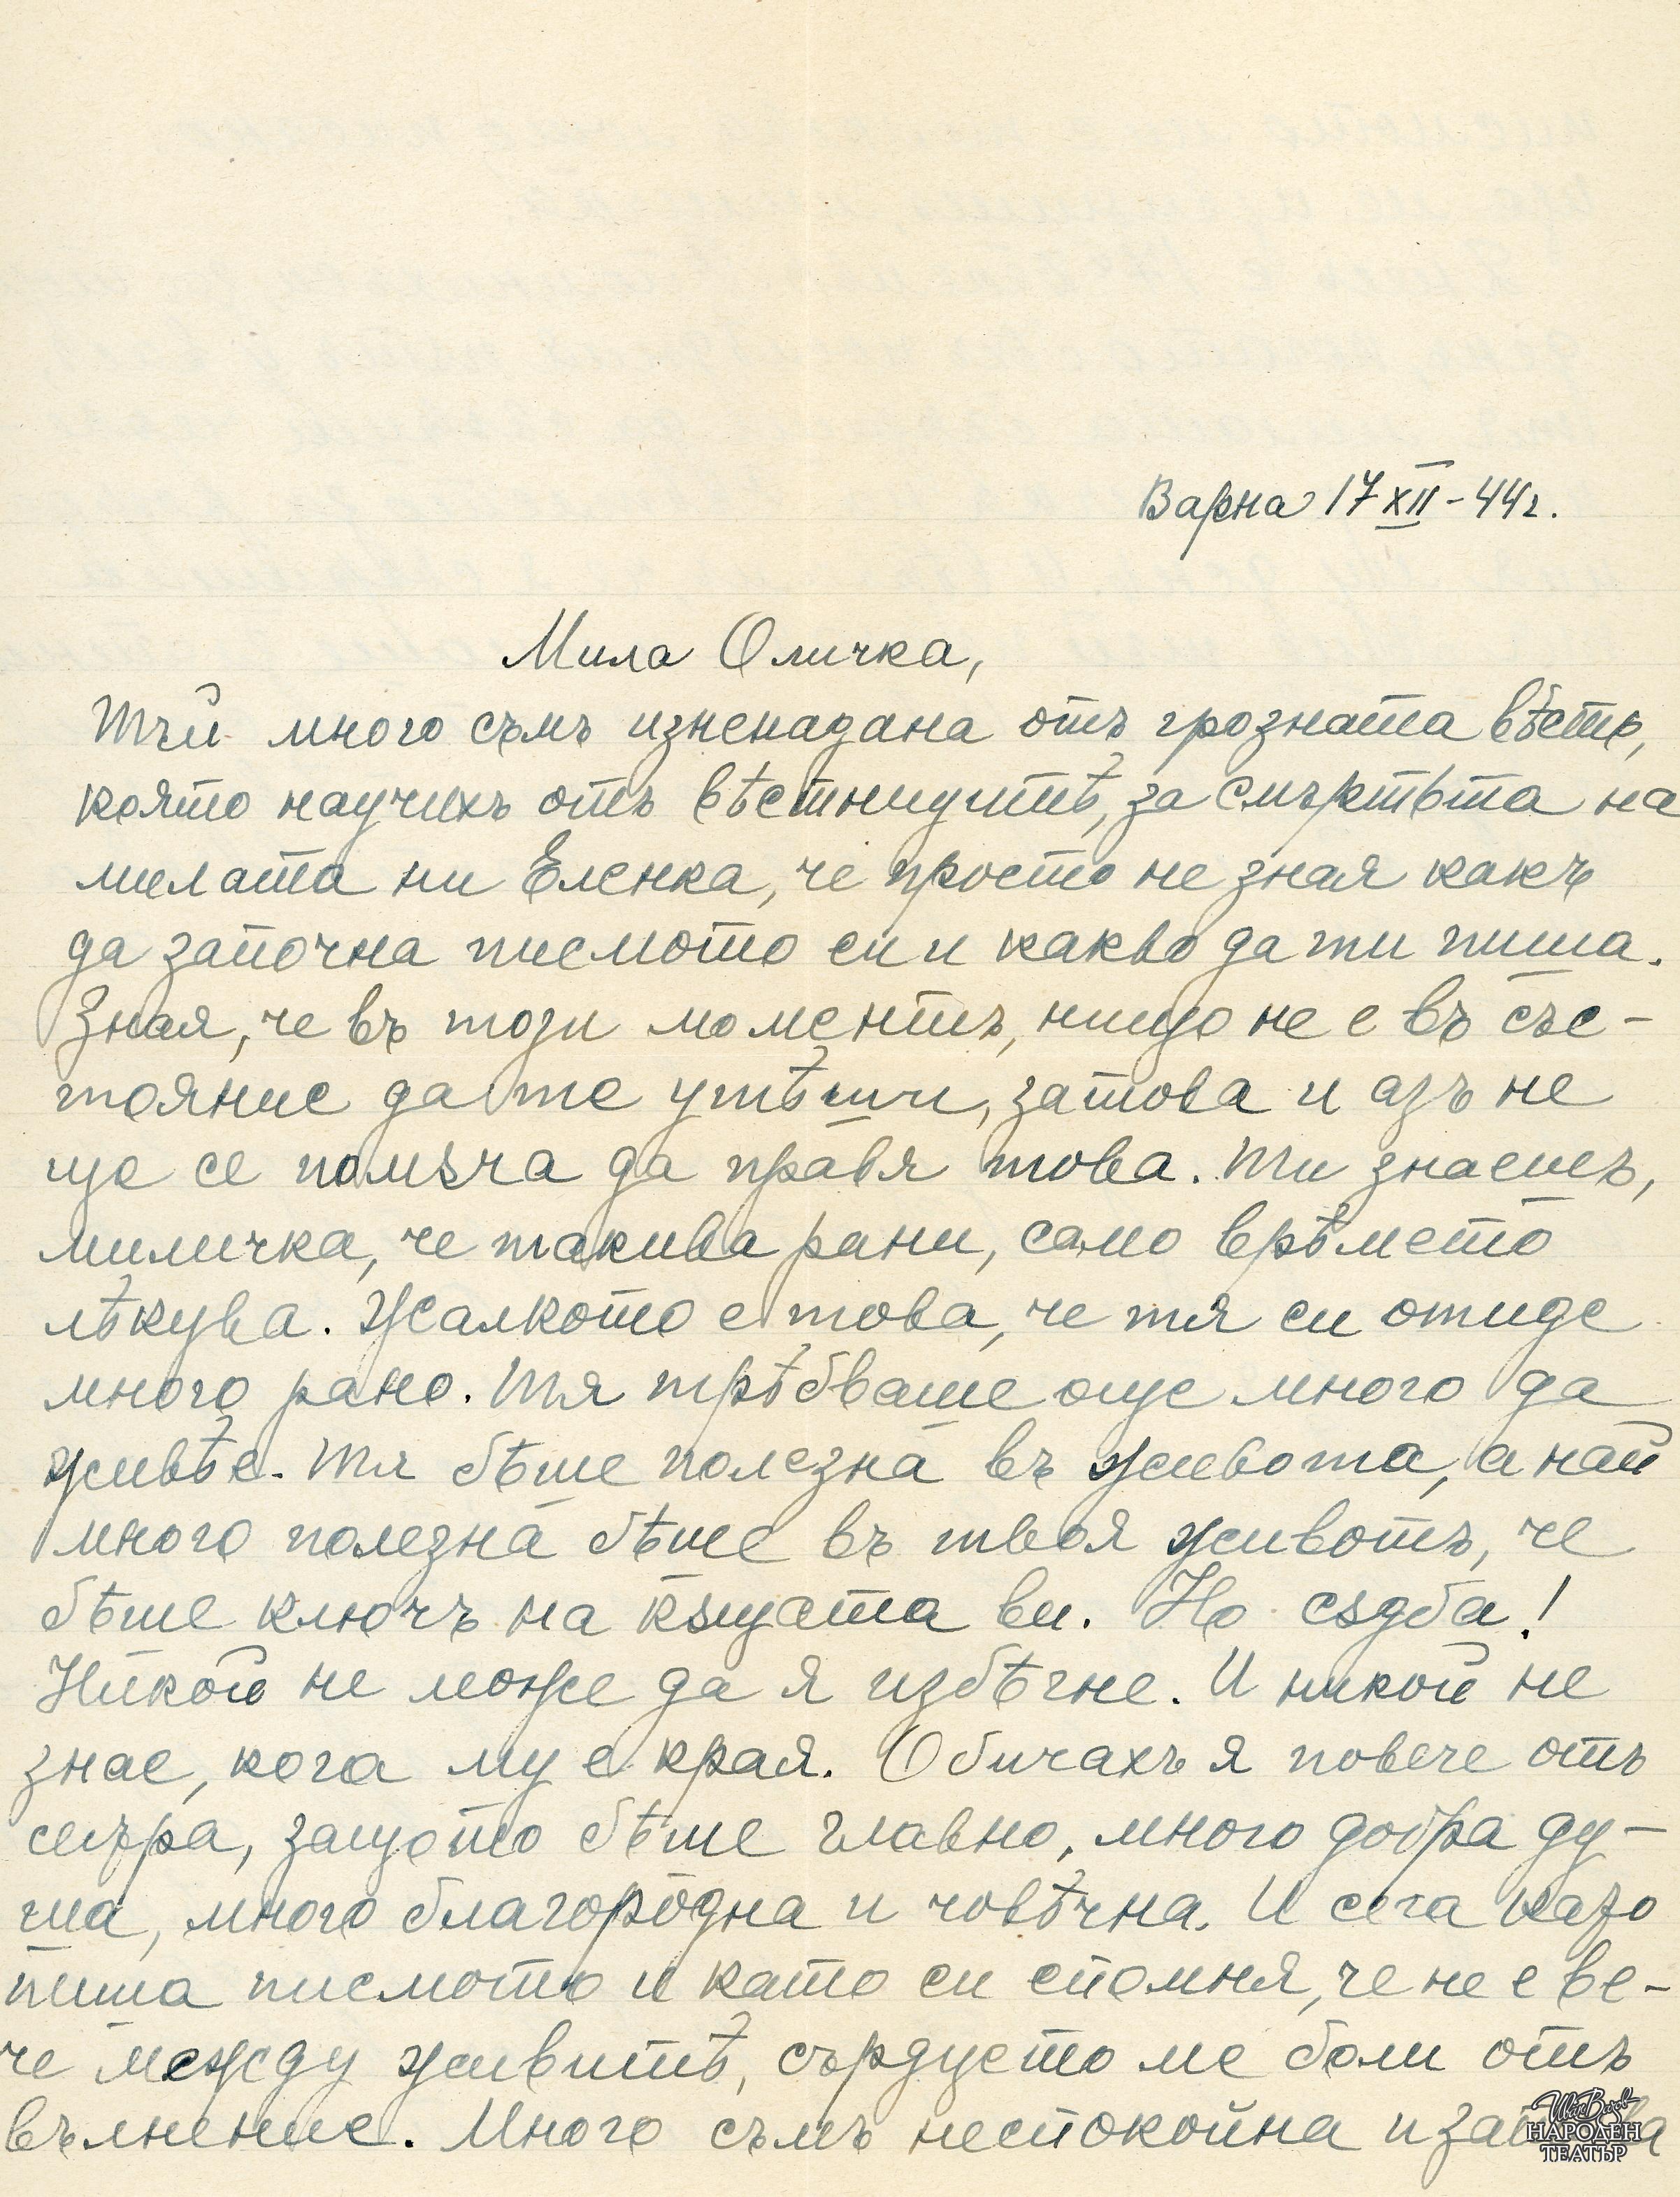 Варна 17 XII - 44 г.
Мила Оличка,
Тъй много съмъ изненадана отъ грозната вѣсть,
която научихъ отъ вѣстницитѣ, за смъртьта на
милата ни Еленка, че просто не зная какъ
да започна писмото си и какво да ти пиша.
Зная, че въ този моментъ, нищо не е въ със-
тояние да те утѣши, затова и азъ не
ще се помѫча да правя това. Ти знаешъ,
миличка, че такива рани, само врѣмето
лѣкува. Жалкото е това, че тя си отиде
много рано. Тя трѣбваше още много да
живѣе. Тя бѣше полезна въ живота, а най
много полезна бѣше въ твоя животъ, че
бѣше ключъ на кѫщата ви. Но сѫдба!
Никой не може да я избѣгне. И никой не
знае, кога му е края. Обичахъ я повече отъ
сестра, защото бѣше главно, много добра ду-
ша, много благородна и човѣчна. И сега като
пиша писмото и като си спомня, че не е ве-
че между живитѣ, сърдцето ме боли отъ
вълнение. Много съмъ неспокойна и затова
Ив. Вазов
НАРОДЕН
ТЕАТЪР